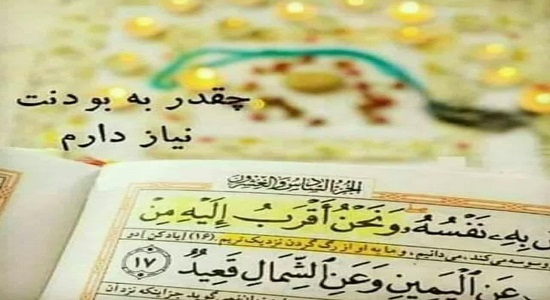 چقدر به بودنت
نیاز دارم
الجزء السادس والعشرون
بِهِ نَفْسُهُ وَنَحْنُ أَقْرَبُ إِلَيْهِ مِنْ
وسوسه می‌کند، می‌دانیم، و ما به او از رگ گردن نزدیک‌تریم. (۱۶) [یاد کن] دو
عَنِ الْيَمِينِ وَعَنِ الشِّمَالِ قَعِيدٌ ١٧
گوید جز اینکه نزد آن